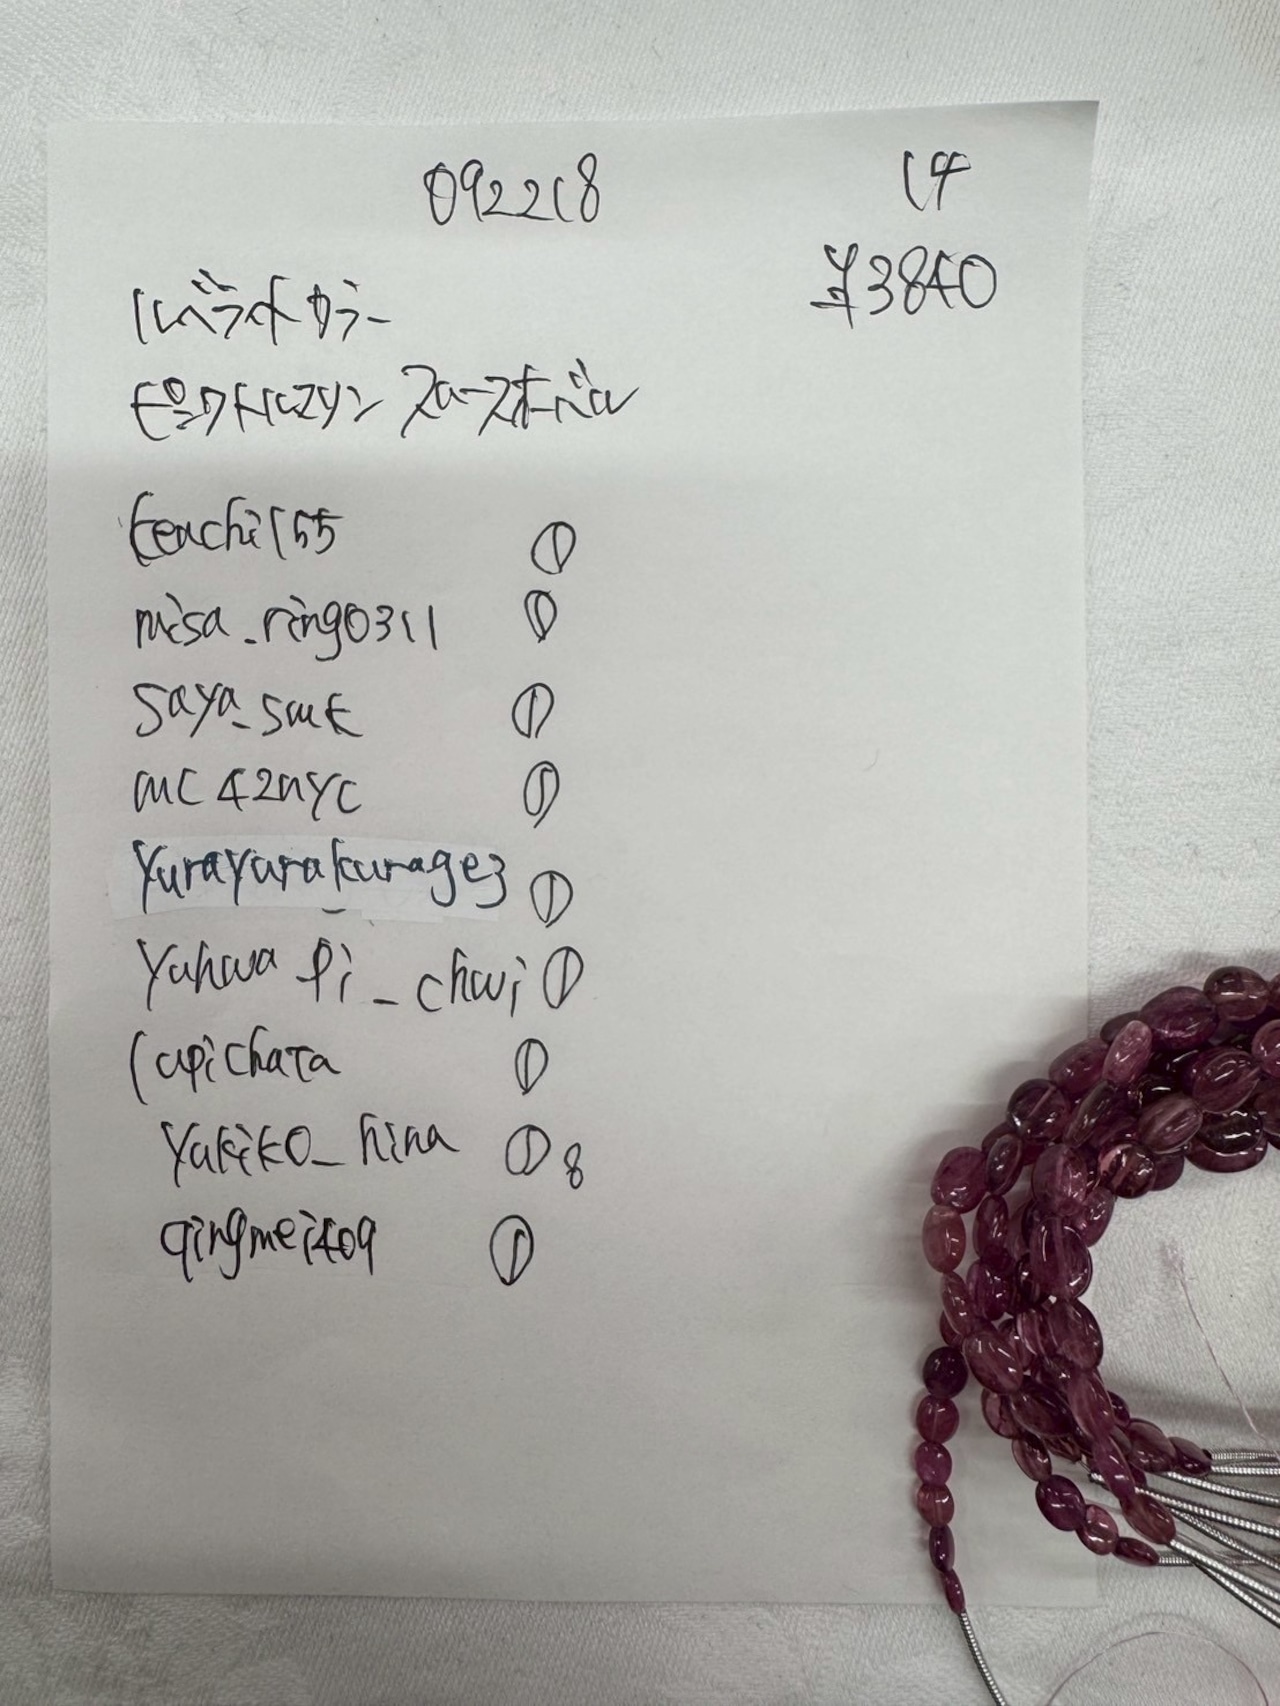 092218
14
¥3840
ルベライトカラー
ピンクトルマリン スムースオーバル
tenchi155 ①
misa_ringo311 ①
saya_smk ①
mc42nyc ①
yurayurakurage3 ①
yuhwa pi_chwi ①
lupichara ①
yukiko_hina ① 8
qingmei409 ①